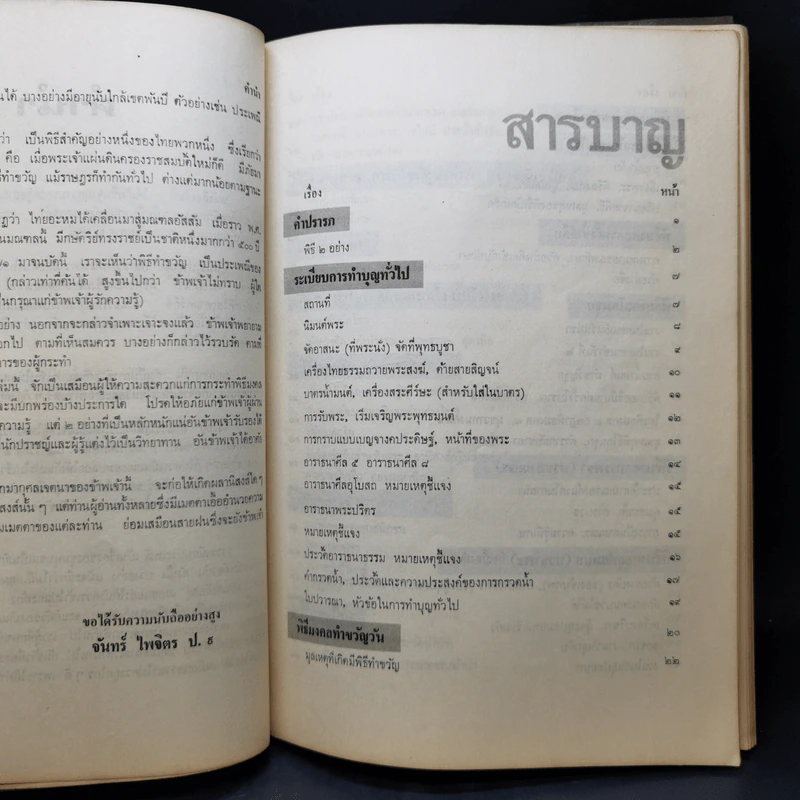 คำนำ
นได้ บางอย่างมีอายุนับใกล้เขตพันปี ตัวอย่างเช่น ประเพณี
ว่า เป็นพิธีสำคัญอย่างหนึ่งของไทยพวกหนึ่ง ซึ่งเรียกว่า
คือ เมื่อพระเจ้าแผ่นดินครองราชสมบัติใหม่ก็ดี มีภัยมา
ธีทำขวัญ แม้ราษฎรก็ทำกันทั่วไป ต่างแต่มากน้อยตามฐานะ
ฏว่า ไทยอะหมได้เคลื่อนมาสู่มณฑลอัสสัม เมื่อราว พ.ศ.
นมณฑลนี้ มีกษัตริย์ทรงราชย์เป็นชาติหนึ่งมากกว่า ๕๐๐ ปี
๗๑ มาจนบัดนี้ เราจะเห็นว่าพิธีทำขวัญ เป็นประเพณีของ
(กล่าวเท่าที่ค้นได้ สูงขึ้นไปกว่า ข้าพเจ้าไม่ทราบ ผู้ใด
ดกรุณาแก่ข้าพเจ้าผู้รักความรู้)
อย่าง นอกจากจะกล่าวจำเพาะเจาะจงแล้ว ข้าพเจ้าพยายาม
ออกไป ตามที่เห็นสมควร บางอย่างก็กล่าวไว้รวบรัด ตามที่
การของผู้กระทำ
ล่มนี้ จักเป็นเสมือนผู้ให้ความสะดวกแก่การกระทำพิธีมงคล
จะมีบกพร่องบ้างประการใด โปรดให้อภัยแก่ข้าพเจ้าผู้ผ่าน
ความรู้ แต่ ๒ อย่างที่เป็นหลักหนักแน่นอันข้าพเจ้ารับรองได้
นักปราชญ์และผู้รู้แต่งไว้เป็นวิทยาทาน อันข้าพเจ้าได้อาศัย
กมากุศลเจตนาของข้าพเจ้านี้ จะก่อให้เกิดผลานิสงส์ใด ๆ
สงส์นั้น ๆ แด่ท่านผู้อ่านทั้งหลายซึ่งมีเมตตาเอื้ออำนวยความ
มเมตตาของแต่ละท่าน ย่อมเสมือนสายฝนซึ่งจะยังข้าพเจ้า
ขอได้รับความนับถืออย่างสูง
จันทร์ ไพจิตร ป. ๙
สารบาญ
เรื่อง หน้า
คำปรารภ ๑
พิธี ๒ อย่าง ๒
ระเบียบการทำบุญทั่วไป ๗
สถานที่ ๗
นิมนต์พระ ๘
จัดอาสนะ (ที่พระนั่ง) จัดที่พุทธบูชา ๙
เครื่องไทยธรรมถวายพระสงฆ์, ด้ายสายสิญจน์ ๑๐
บาตรน้ำมนต์, เครื่องสระศีรษะ (สำหรับใส่ในบาตร) ๑๑
การรับพระ, เริ่มเจริญพระพุทธมนต์ ๑๒
การกราบแบบเบญจางคประดิษฐ์, หน้าที่ของพระ ๑๓
อาราธนาศีล ๕ อาราธนาศีล ๘ ๑๔
อาราธนาศีลอุโบสถ หมายเหตุชี้แจง ๑๕
อาราธนาพระปริตร ๑๕
หมายเหตุชี้แจง ๑๕
ประวัติอาราธนาธรรม หมายเหตุชี้แจง ๑๖
คำกรวดน้ำ, ประวัติและความประสงค์ของการกรวดน้ำ ๑๗
ใบปวารณา, หัวข้อในการทำบุญทั่วไป ๑๙
พิธีมงคลทำขวัญวัน ๒๐
มูลเหตุที่เกิดมีพิธีทำขวัญ ๒๒